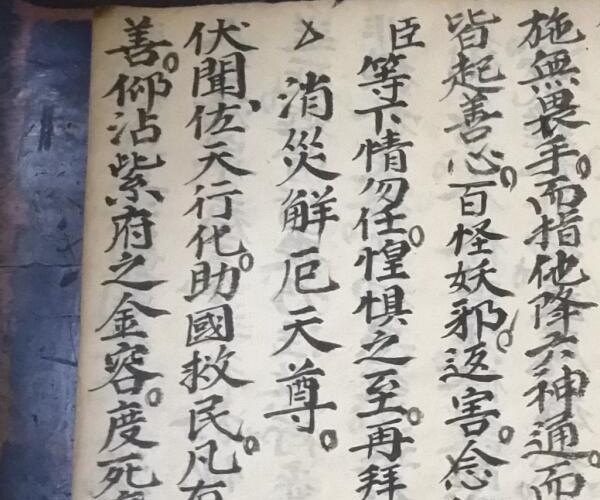 施無畏手。而指他降六神通。而
皆起善心。百怪妖邪。返害。念
臣等下情勿任。惶惧之至。再拜
消災解厄天尊。
伏聞佐天行化。助國救民。凡有
善。仰沾紫府之金容。度死